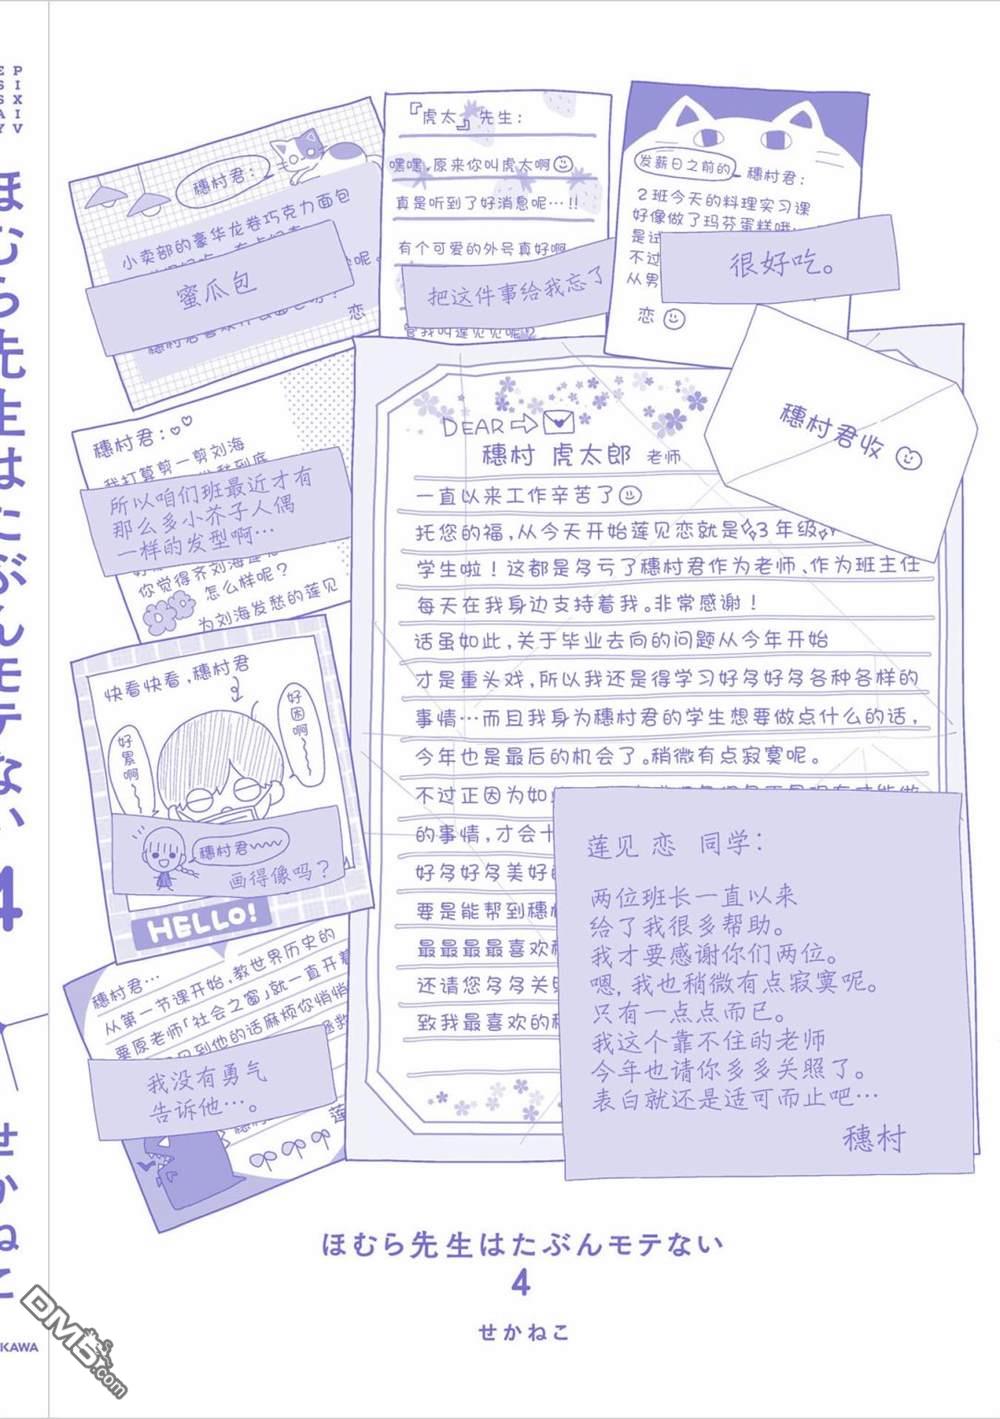 PIXIV
ESSAY
ほむら先生はたぶんモテない 4
せかねこ
KAWA
穗村君:
小卖部的豪华龙卷巧克力面包
蜜瓜包
恋
『虎太』先生:
嘿嘿,原来你叫虎太啊
真是听到了好消息呢…!!
有个可爱的外号真好啊
把这件事给我忘了
管我叫莲见见呢
发薪日之前的 穗村君:
2班今天的料理实习课
好像做了玛芬蛋糕哦
是试
不过
从男
很好吃。
恋
穗村君:
我打算剪一剪刘海
所以咱们班最近才有
那么多小芥子人偶
一样的发型啊…
你觉得齐刘海
怎么样呢?
为刘海发愁的莲见
穗村君收
DEAR
穗村 虎太郎 老师
一直以来工作辛苦了
托您的福,从今天开始莲见恋就是3年级
学生啦!这都是多亏了穗村君作为老师、作为班主任
每天在我身边支持着我。非常感谢!
话虽如此,关于毕业去向的问题从今年开始
才是重头戏,所以我还是得学习好多好多各种各样的
事情…而且我身为穗村君的学生想要做点什么的话,
今年也是最后的机会了。稍微有点寂寞呢。
不过正因为如
的事情,才会十
好多好多美好的
要是能帮到穗村
最最最最喜欢穗
还请您多多关照
致我最喜欢的穗
快看快看,穗村君
好困啊~~
好累啊~~
穗村君~~~
画得像吗?
HELLO!
穗村君…
从第一节课开始,教世界历史的
栗原老师「社会之窗」就一直开着
到他的话麻烦你悄悄
我没有勇气
告诉他…。
莲
莲见 恋 同学:
两位班长一直以来
给了我很多帮助。
我才要感谢你们两位。
嗯,我也稍微有点寂寞呢。
只有一点点而已。
我这个靠不住的老师
今年也请你多多关照了。
表白就还是适可而止吧…
穗村
ほむら先生はたぶんモテない
4
せかねこ
DM5